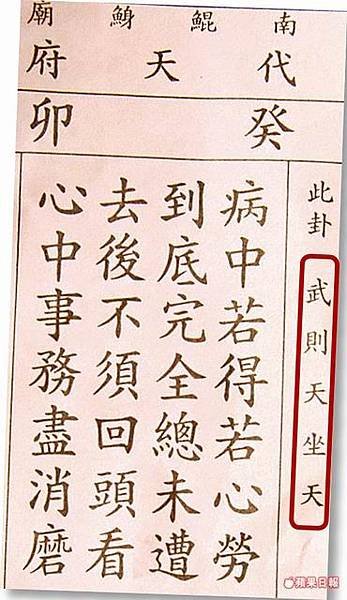 南鯤鯓廟
代天府
癸卯
此卦 武則天坐天
病中若得若心勞
到底完全總未遭
去後不須回頭看
心中事務盡消磨
蘋果日報